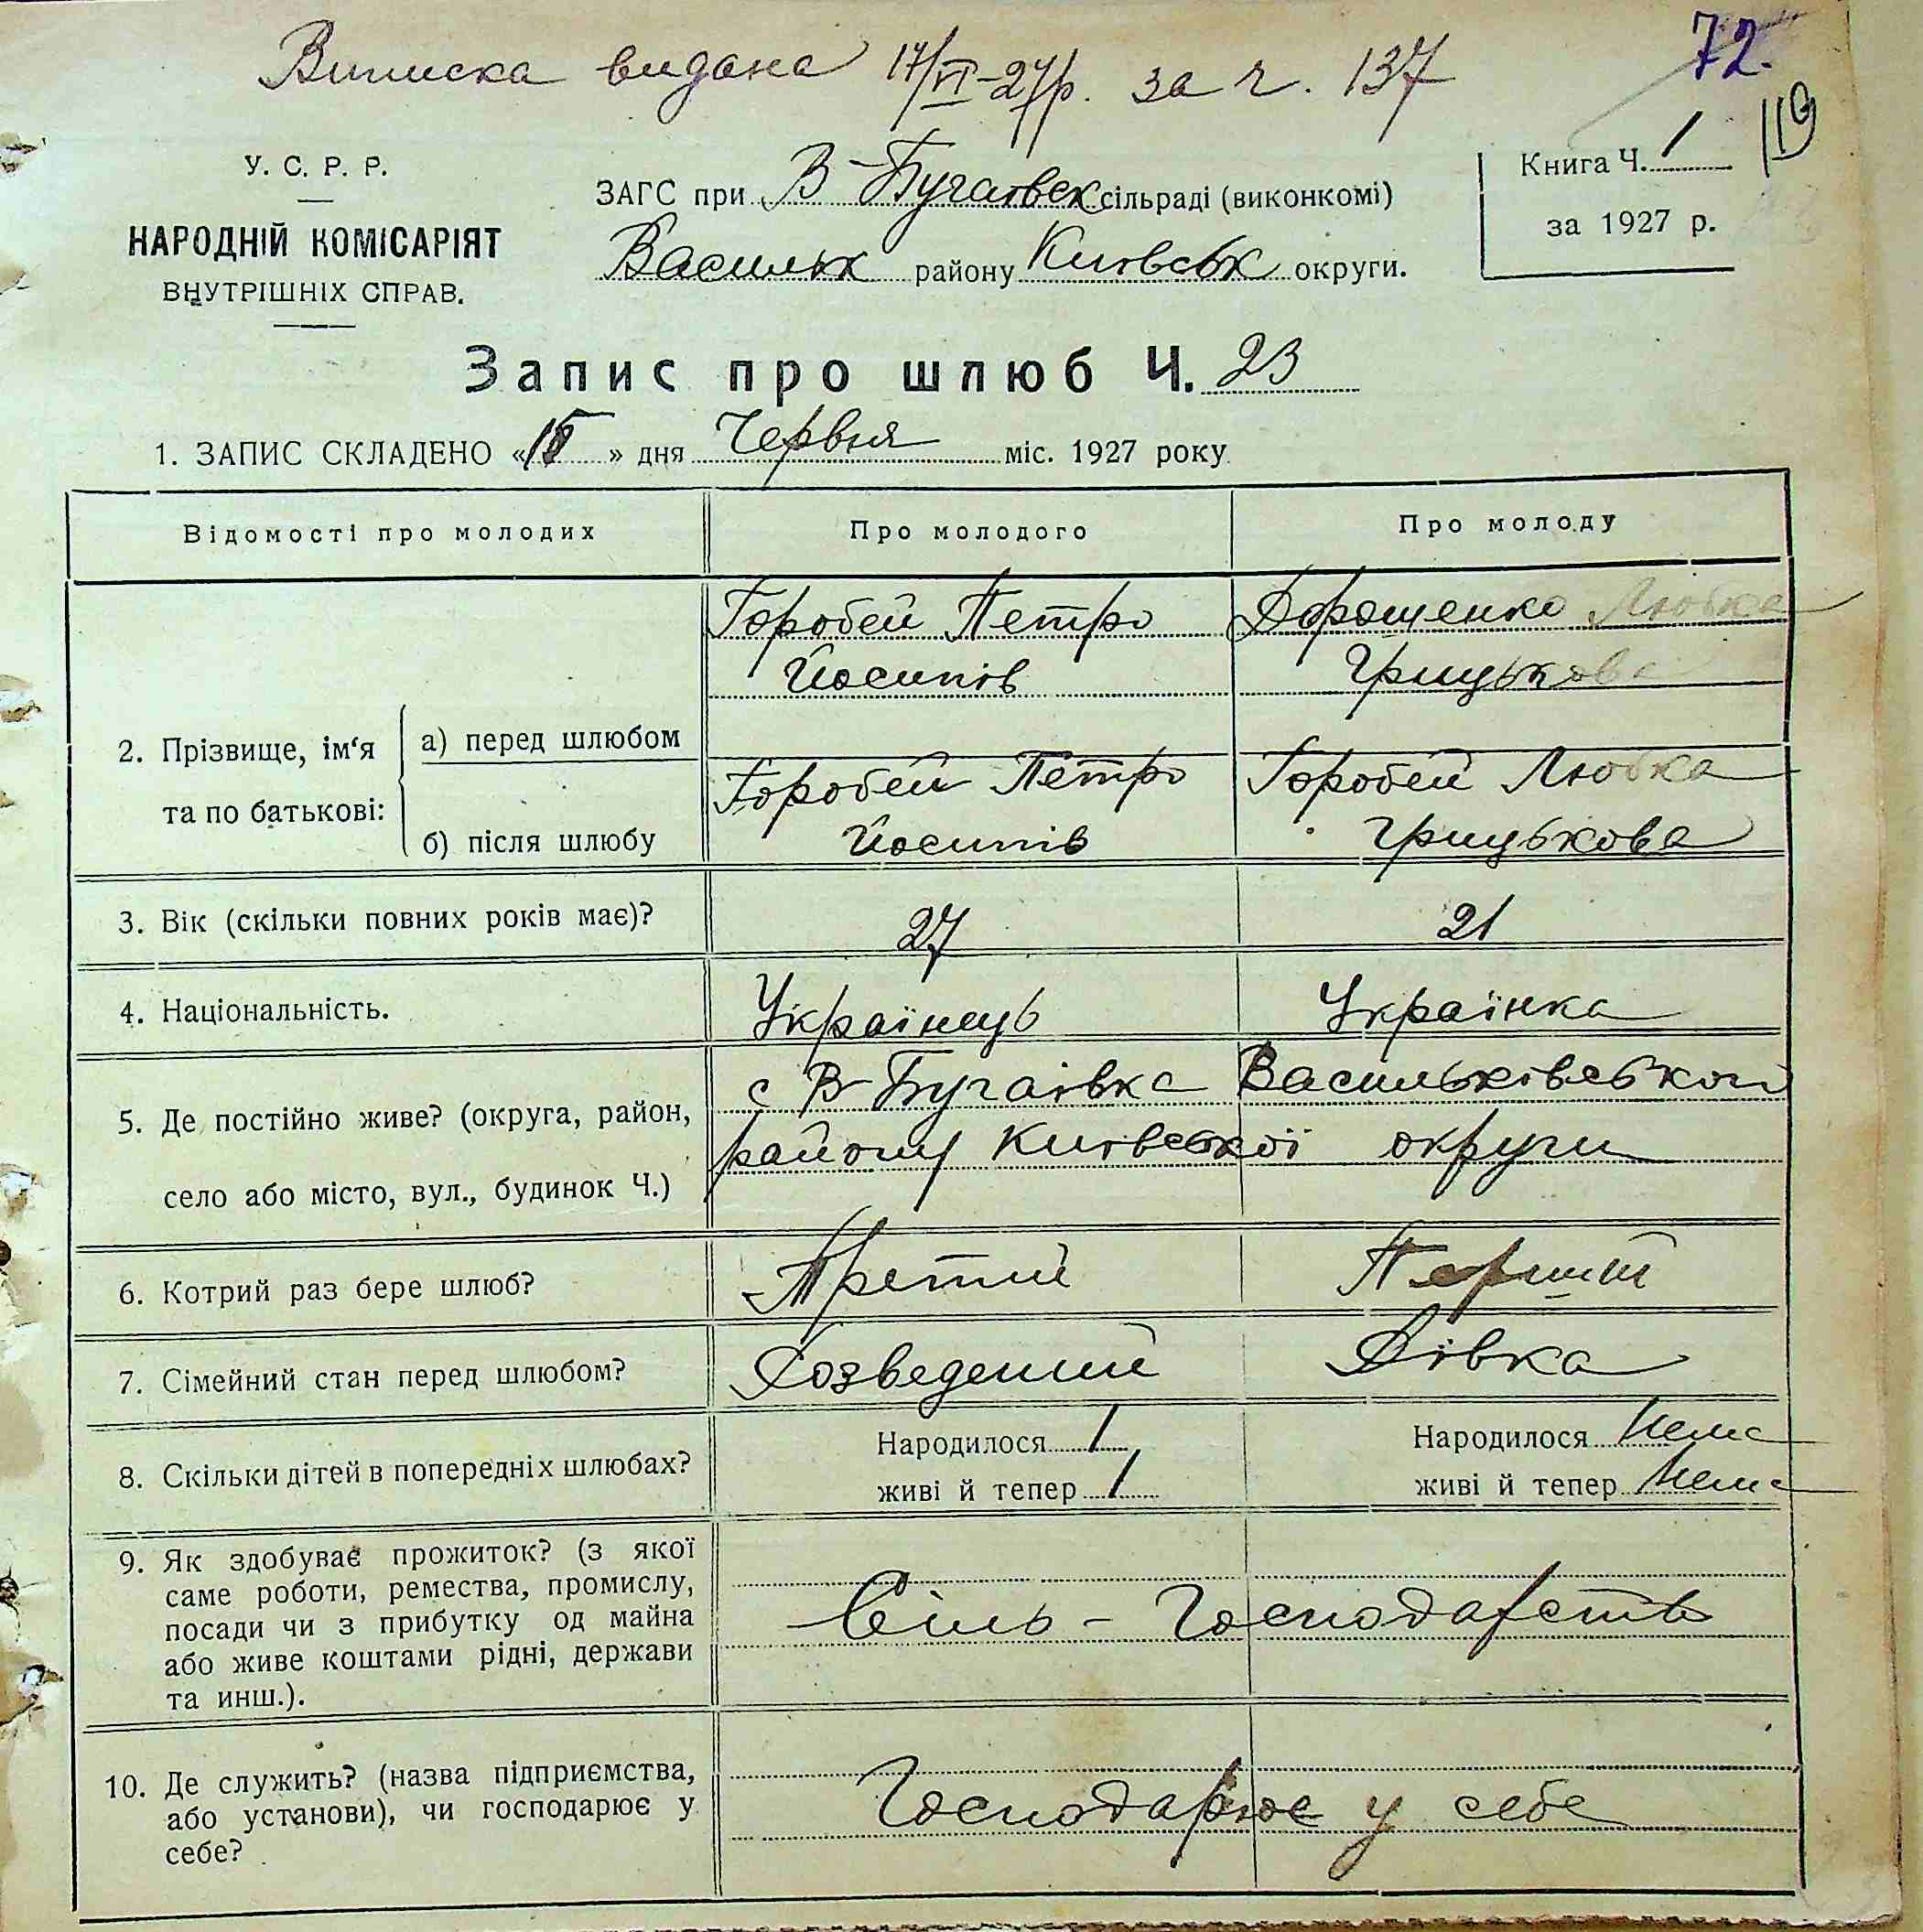 Виписка видана 17/VI-27р. за ч. 137
72.
119
У. С. Р. Р.
НАРОДНІЙ КОМІСАРІЯТ
ВНУТРІШНІХ СПРАВ.
ЗАГС при В-Бугаївск сільраді (виконкомі)
Васильк району Київськ округи.
Книга Ч. 1
за 1927 р.
Запис про шлюб Ч. 23
1. ЗАПИС СКЛАДЕНО « » дня Червня міс. 1927 року
Відомості про молодих Про молодого Про молоду
2. Прізвище, ім'я та по батькові:
а) перед шлюбом
Горобей Петро Дорошенко Любка
Йосипів Грицькова
б) після шлюбу
Горобей Петро Горобей Любка
Йосипів Грицькова
3. Вік (скільки повних років має)? 27 21
4. Національність. Українець Українка
5. Де постійно живе? (округа, район,
село або місто, вул., будинок Ч.)
с В-Бугаївка Васильківського
району Київської округи
6. Котрий раз бере шлюб? Третий Перший
7. Сімейний стан перед шлюбом? Розведений Дівка
8. Скільки дітей в попередніх шлюбах?
Народилося 1 Народилося Нема
живі й тепер 1 живі й тепер Нема
9. Як здобуває прожиток? (з якої
саме роботи, ремества, промислу,
посади чи з прибутку од майна
або живе коштами рідні, держави
та инш.).
Сіль-Господарств
10. Де служить? (назва підприємства,
або установи), чи господарює у
себе?
Господарює у себе